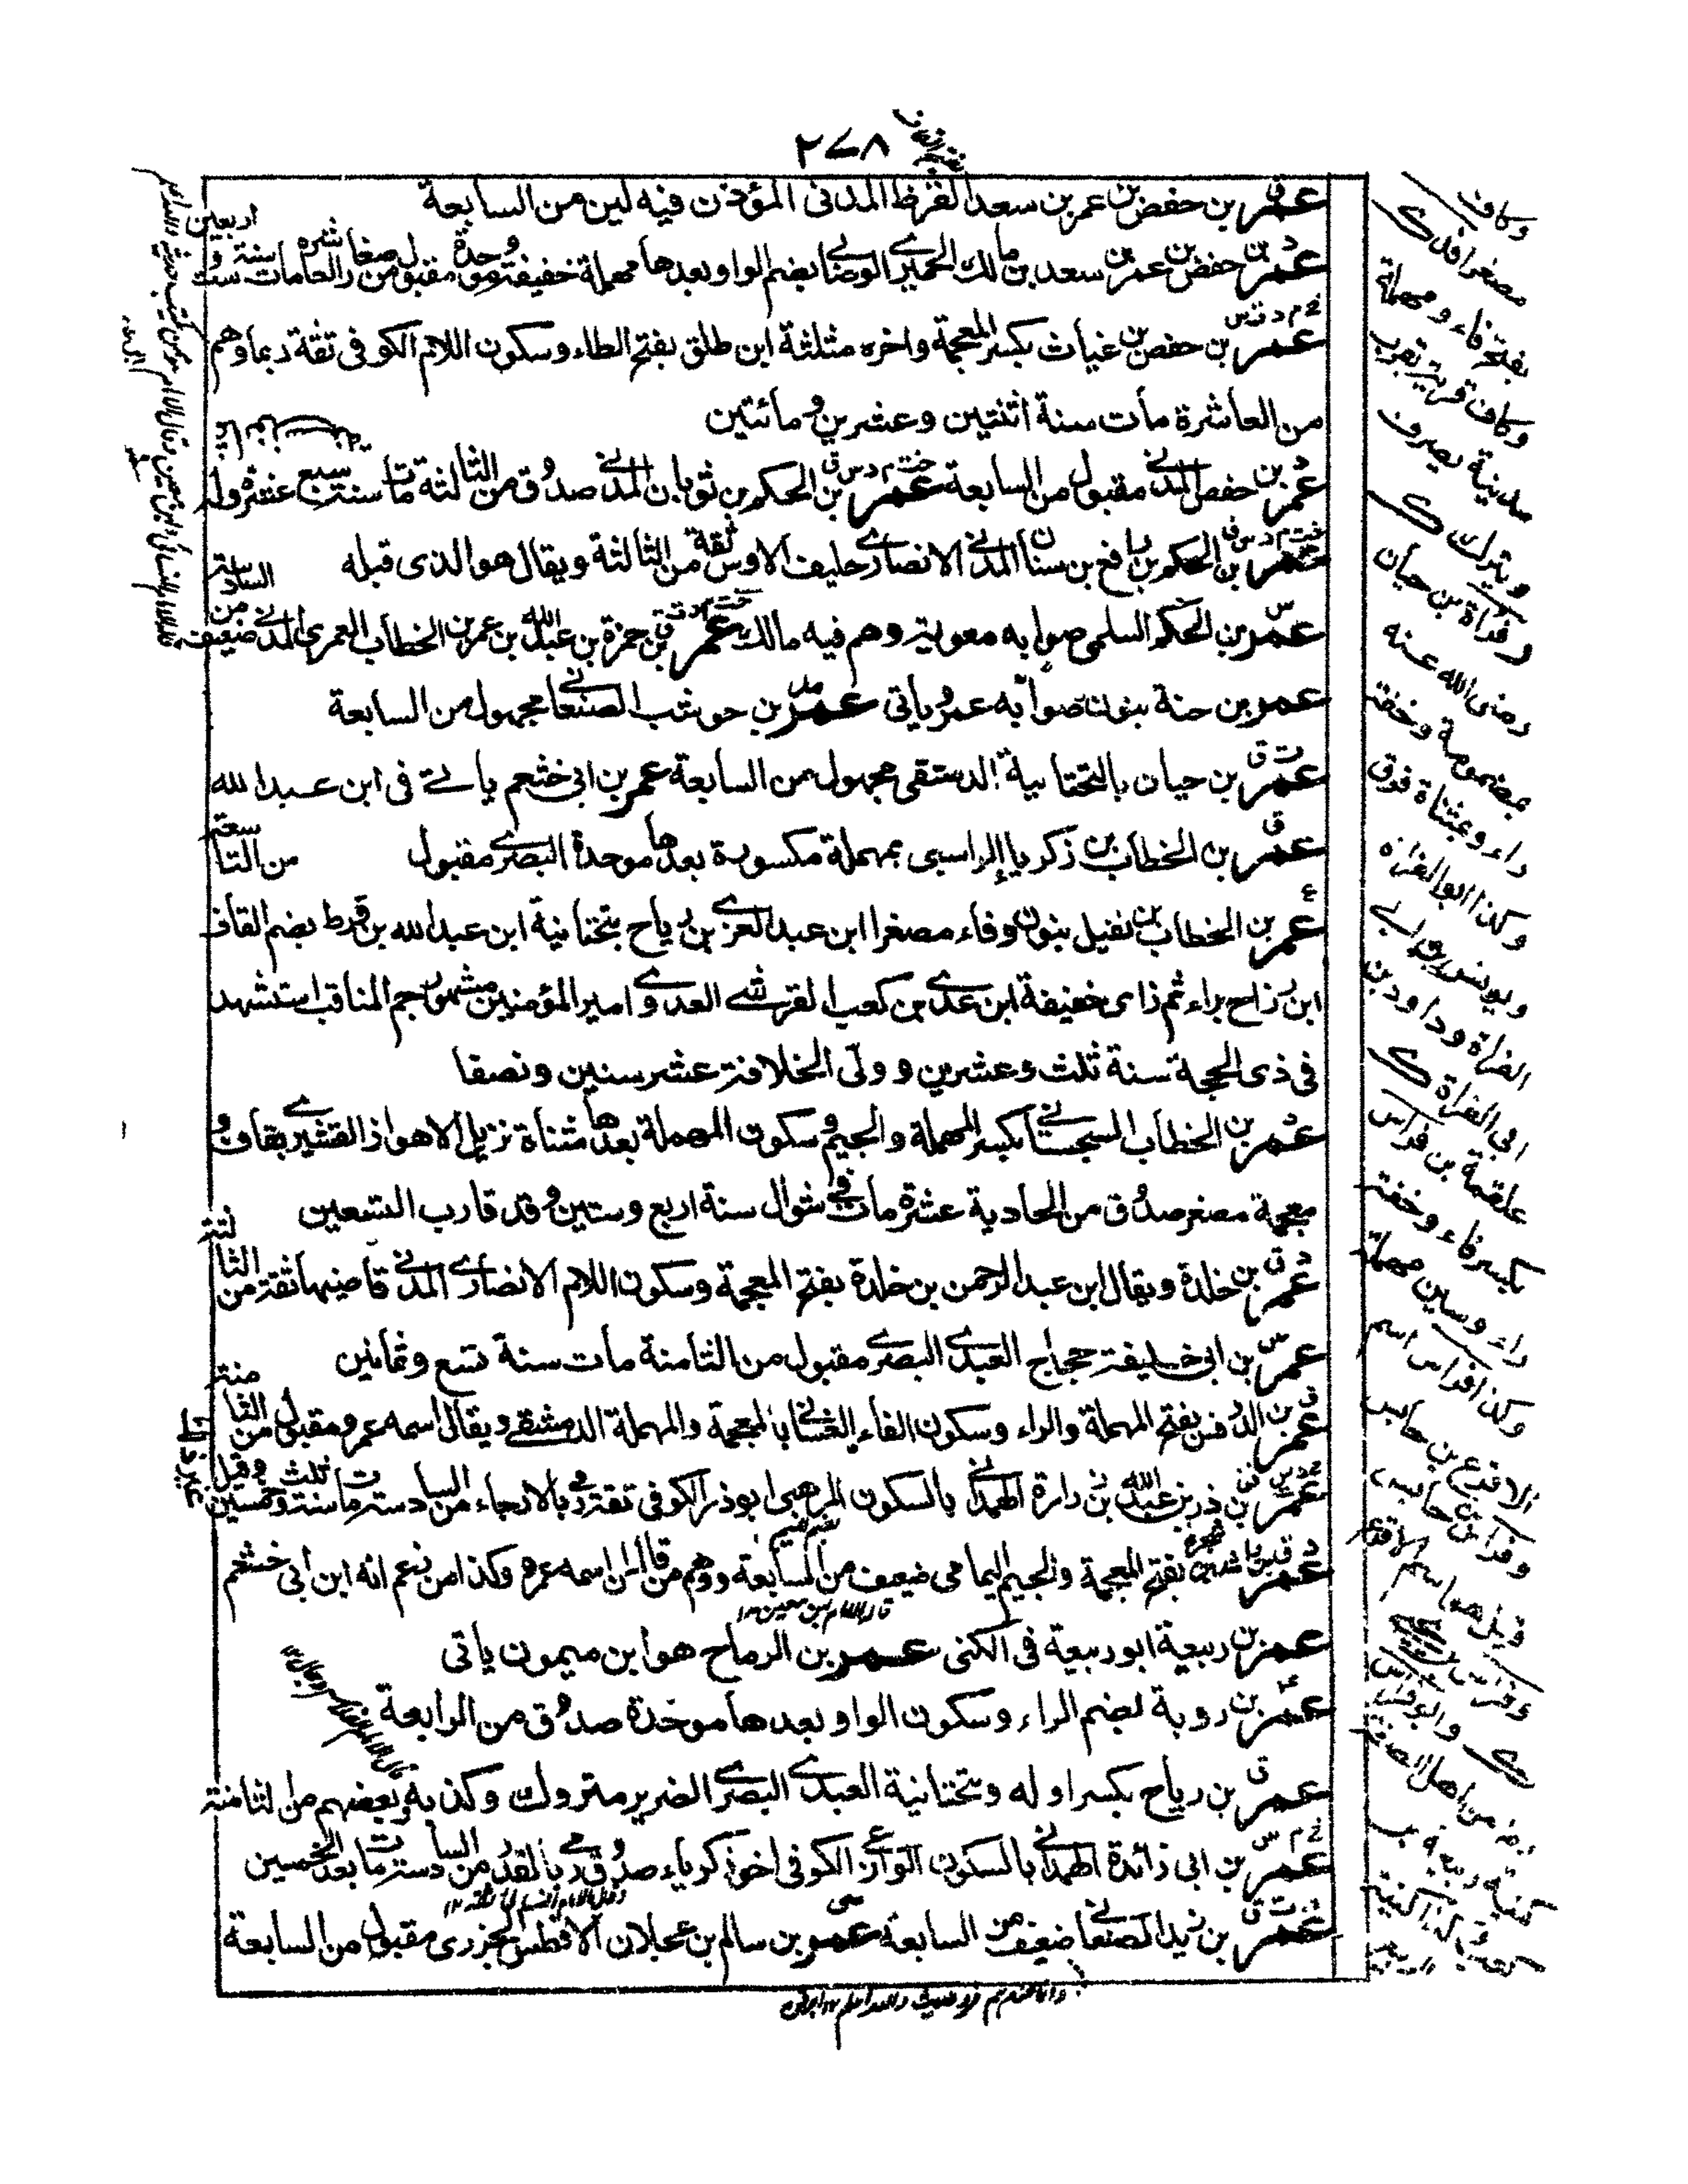 ٢٧٨
عمر بن حفص بن عمر بن سعد القرظ المدنى المؤذن فيه لين من السابعة
عمر بن حفص بن عمر بن سعد بن مالك الحميرے الوصابے بضم الواو وبعدها مهملة خفيفة وموحدة مقبول من صغار الحادية عشرة مات سنة ست واربعين
عمر بن حفص بن غياث بكسر المعجمة واخره مثلثة ابن طلق بفتح الطاء وسكون اللام الكوفى ثقة ربما وهم
من العاشرة مات سنة اثنتين وعشرين ومائتين
عمر بن حفص المدنے مقبول من السابعة عمر بن الحكم بن ثوبان المدنے صدوق من الثالثة مات سنة سبع عشرة وله
عمر بن الحكم بن رافع بن سنان المدنے الانصارے حليف الاوس ثقة من الثالثة ويقال هو الذى قبله
عمر بن الحكم السلمى صوابه معوية وهم فيه مالك عمر بن حمزة بن عبد الله بن عمر بن الخطاب العمرى المدنے ضعيف من السادسة
عمر بن حنة بنون صوابه عمرو ياتى عمر بن حوشب الصنعانے مجهول من السابعة
عمر بن حيان بالتحتانية الدمشقى مجهول من السابعة عمر بن ابى خثعم ياتے فى ابن عبد الله
عمر بن الخطاب بن زكريا الراسبى بمهملة مكسورة بعدها موحدة البصرے مقبول من التاسعة
عمر بن الخطاب بن نفيل بنون وفاء مصغرا ابن عبد العزى بن رياح بتحتانية ابن عبد الله بن قرط بضم القاف
ابن رزاح براء ثم زاى خفيفة ابن عدے بن كعب القرشے العدوے امير المؤمنين مشهور جم المناقب استشهد
فى ذى الحجة سنة ثلث وعشرين وولى الخلافة عشر سنين ونصفا
عمر بن الخطاب السجستانے بكسر المهملة والجيم وسكون المهملة بعدها مثناة نزيل الاهواز القشيرے بقاف و
معجمة مصغر صدوق من الحادية عشرة مات فے شوال سنة اربع وستين وقد قارب التسعين
عمر بن خلدة ويقال ابن عبد الرحمن بن خلدة بفتح المعجمة وسكون اللام الانصارے المدنے قاضيها ثقة من الثالثة
عمر بن ابى خليفة حجاج العبدے البصرے مقبول من الثامنة مات سنة تسع وثمانين
عمر بن الدرفس بفتح المهملة والراء وسكون الفاء الغسانے بالمعجمة والمهملة الدمشقے ويقال اسمه عمرو مقبول من الثامنة
عمر بن ذر بن عبد الله بن زرارة الهمدانے بالسكون المرهبى ابو ذر الكوفى ثقة رمے بالارجاء من السادسة مات سنة ثلث وخمسين وقيل
عمر بن راشد بن شجرة بفتح المعجمة والجيم اليمامى ضعيف من السابعة ووهم من قال ان اسمه عمرو وكذا من زعم انه ابن ابى خثعم
عمر بن ربيعة ابو ربيعة فى الكنى عمر بن الرماح هو ابن ميمون ياتى
عمر بن روبة بضم الراء وسكون الواو بعدها موحدة صدوق من الرابعة
عمر بن رياح بكسر اوله وتحتانية العبدے البصرے الضرير متروك وكذبه بعضهم من الثامنة
عمر بن ابى زائدة الهمدانے بالسكون الوادعے الكوفى اخو زكرياء صدوق رمے بالقدر من السادسة مات بعد الخمسين
عمر بن زيد الصنعانے ضعيف من السابعة عمر بن سالم بن عجلان الافطس الجزرى مقبول من السابعة
وكاف
مصغرا فدك
بفتح فاء ومهملة
وكاف قرية بقرب
مدينة يصرف
ويترك
وفزاة بن حيان
رضى الله عنه
بمضمومة وخفة
راء وبمثناة فوق
وكذا ابو الفراة
الفراة وداود بن
ابى الفراة
علقمة بن فراس
بكسر فاء وخفة
راء وسين مهملة
وكذا فراس اسم
الاقرع بن حابس